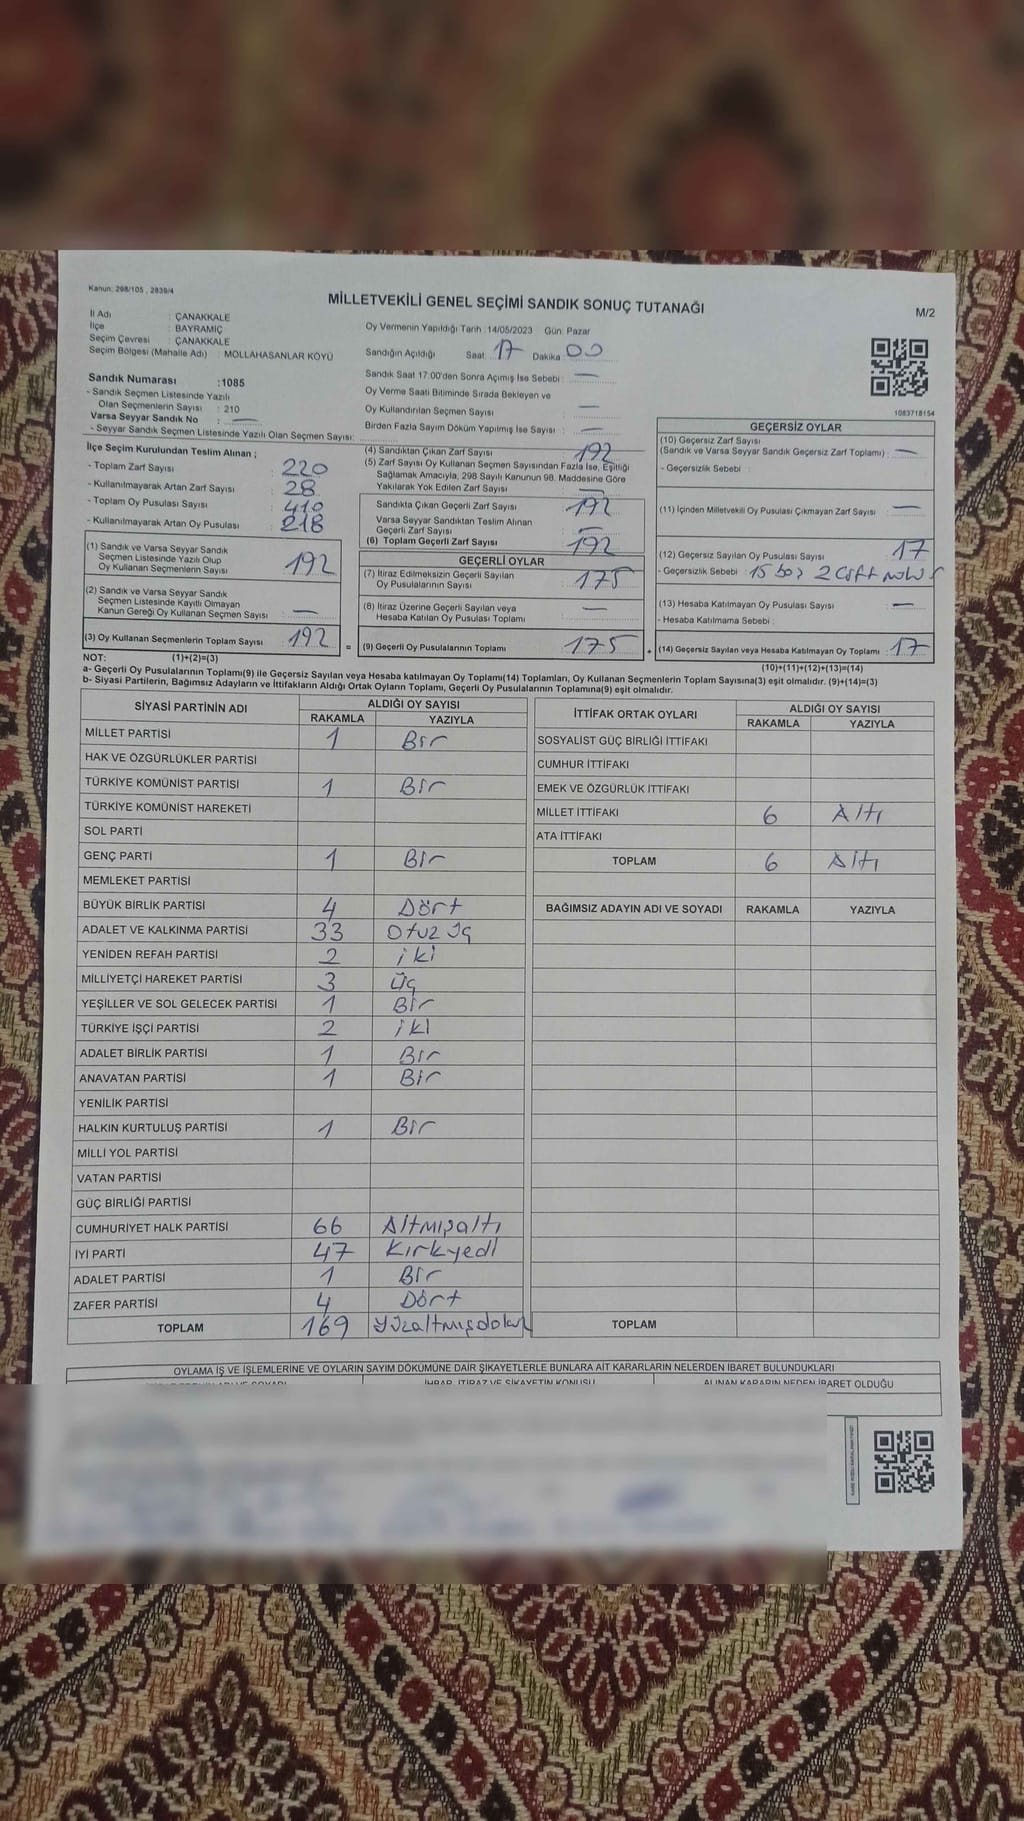 Kanun: 298/105 , 2839/4
MİLLETVEKİLİ GENEL SEÇİMİ SANDIK SONUÇ TUTANAĞI
M/2
İl Adı : ÇANAKKALE
İlçe : BAYRAMİÇ
Seçim Çevresi : ÇANAKKALE
Seçim Bölgesi (Mahalle Adı) : MOLLAHASANLAR KÖYÜ
Sandık Numarası :1085
- Sandık Seçmen Listesinde Yazılı
Olan Seçmenlerin Sayısı : 210
Varsa Seyyar Sandık No : —
- Seyyar Sandık Seçmen Listesinde Yazılı Olan Seçmen Sayısı:
Oy Vermenin Yapıldığı Tarih :14/05/2023 Gün: Pazar
Sandığın Açıldığı Saat: 17 Dakika: 00
Sandık Saat 17:00'den Sonra Açımış İse Sebebi : —
Oy Verme Saati Bitiminde Sırada Bekleyen ve
Oy Kullandırılan Seçmen Sayısı : —
Birden Fazla Sayım Döküm Yapılmış İse Sayısı : —
1083718154
İlçe Seçim Kurulundan Teslim Alınan ;
- Toplam Zarf Sayısı : 220
- Kullanılmayarak Artan Zarf Sayısı : 28
- Toplam Oy Pusulası Sayısı : 410
- Kullanılmayarak Artan Oy Pusulası : 218
(1) Sandık ve Varsa Seyyar Sandık
Seçmen Listesinde Yazılı Olup
Oy Kullanan Seçmenlerin Sayısı : 192
(2) Sandık ve Varsa Seyyar Sandık
Seçmen Listesinde Kayıtlı Olmayan
Kanun Gereği Oy Kullanan Seçmen Sayısı : —
(3) Oy Kullanan Seçmenlerin Toplam Sayısı : 192
(4) Sandıktan Çıkan Zarf Sayısı : 192
(5) Zarf Sayısı Oy Kullanan Seçmen Sayısından Fazla İse, Eşitliği
Sağlamak Amacıyla, 298 Sayılı Kanunun 98. Maddesine Göre
Yakılarak Yok Edilen Zarf Sayısı : —
Sandıkta Çıkan Geçerli Zarf Sayısı : 192
Varsa Seyyar Sandıktan Teslim Alınan
Geçerli Zarf Sayısı : —
(6) Toplam Geçerli Zarf Sayısı : 192
GEÇERLİ OYLAR
(7) İtiraz Edilmeksizin Geçerli Sayılan
Oy Pusulalarının Sayısı : 175
(8) İtiraz Üzerine Geçerli Sayılan veya
Hesaba Katılan Oy Pusulası Toplamı : —
= (9) Geçerli Oy Pusulalarının Toplamı : 175
GEÇERSİZ OYLAR
(10) Geçersiz Zarf Sayısı
(Sandık ve Varsa Seyyar Sandık Geçersiz Zarf Toplamı) : —
- Geçersizlik Sebebi :
(11) İçinden Milletvekili Oy Pusulası Çıkmayan Zarf Sayısı : —
(12) Geçersiz Sayılan Oy Pusulası Sayısı : 17
- Geçersizlik Sebebi : 15 boş 2 çift mühür
(13) Hesaba Katılmayan Oy Pusulası Sayısı : —
- Hesaba Katılmama Sebebi :
+ (14) Geçersiz Sayılan veya Hesaba Katılmayan Oy Toplamı : 17
NOT: (1)+(2)=(3)
(10)+(11)+(12)+(13)=(14)
a- Geçerli Oy Pusulalarının Toplamı(9) ile Geçersiz Sayılan veya Hesaba katılmayan Oy Toplamı(14) Toplamları, Oy Kullanan Seçmenlerin Toplam Sayısına(3) eşit olmalıdır. (9)+(14)=(3)
b- Siyasi Partilerin, Bağımsız Adayların ve İttifakların Aldığı Ortak Oyların Toplamı, Geçerli Oy Pusulalarının Toplamına(9) eşit olmalıdır.
SİYASİ PARTİNİN ADI ALDIĞI OY SAYISI
RAKAMLA YAZIYLA
MİLLET PARTİSİ 1 Bir
HAK VE ÖZGÜRLÜKLER PARTİSİ
TÜRKİYE KOMÜNİST PARTİSİ 1 Bir
TÜRKİYE KOMÜNİST HAREKETİ
SOL PARTİ
GENÇ PARTİ 1 Bir
MEMLEKET PARTİSİ
BÜYÜK BİRLİK PARTİSİ 4 Dört
ADALET VE KALKINMA PARTİSİ 33 Otuz üç
YENİDEN REFAH PARTİSİ 2 iki
MİLLİYETÇİ HAREKET PARTİSİ 3 Üç
YEŞİLLER VE SOL GELECEK PARTİSİ 1 Bir
TÜRKİYE İŞÇİ PARTİSİ 2 iki
ADALET BİRLİK PARTİSİ 1 Bir
ANAVATAN PARTİSİ 1 Bir
YENİLİK PARTİSİ
HALKIN KURTULUŞ PARTİSİ 1 Bir
MİLLİ YOL PARTİSİ
VATAN PARTİSİ
GÜÇ BİRLİĞİ PARTİSİ
CUMHURİYET HALK PARTİSİ 66 Altmışaltı
İYİ PARTİ 47 Kırkyedi
ADALET PARTİSİ 1 Bir
ZAFER PARTİSİ 4 Dört
TOPLAM 169 Yüzaltmışdokuz
İTTİFAK ORTAK OYLARI ALDIĞI OY SAYISI
RAKAMLA YAZIYLA
SOSYALİST GÜÇ BİRLİĞİ İTTİFAKI
CUMHUR İTTİFAKI
EMEK VE ÖZGÜRLÜK İTTİFAKI
MİLLET İTTİFAKI 6 Altı
ATA İTTİFAKI
TOPLAM 6 Altı
BAĞIMSIZ ADAYIN ADI VE SOYADI RAKAMLA YAZIYLA
TOPLAM
OYLAMA İŞ VE İŞLEMLERİNE VE OYLARIN SAYIM DÖKÜMÜNE DAİR ŞİKAYETLERLE BUNLARA AİT KARARLARIN NELERDEN İBARET BULUNDUKLARI
İHBAR, İTİRAZ VE ŞİKAYETİN KONUSU ALINAN KARARIN NEDEN İBARET OLDUĞU